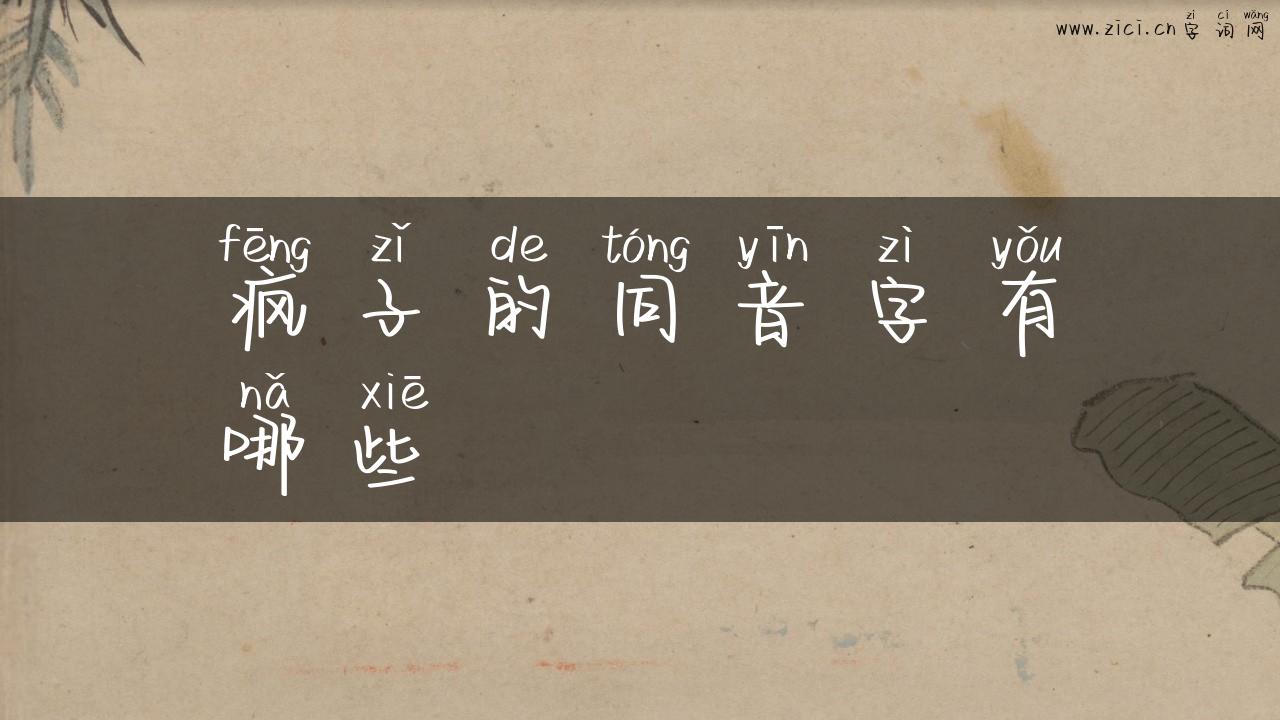 zì cí wǎng
www.zici.cn 字 词 网
fēng zǐ de tóng yīn zì yǒu
疯 子 的 同 音 字 有
nǎ xiē
哪 些